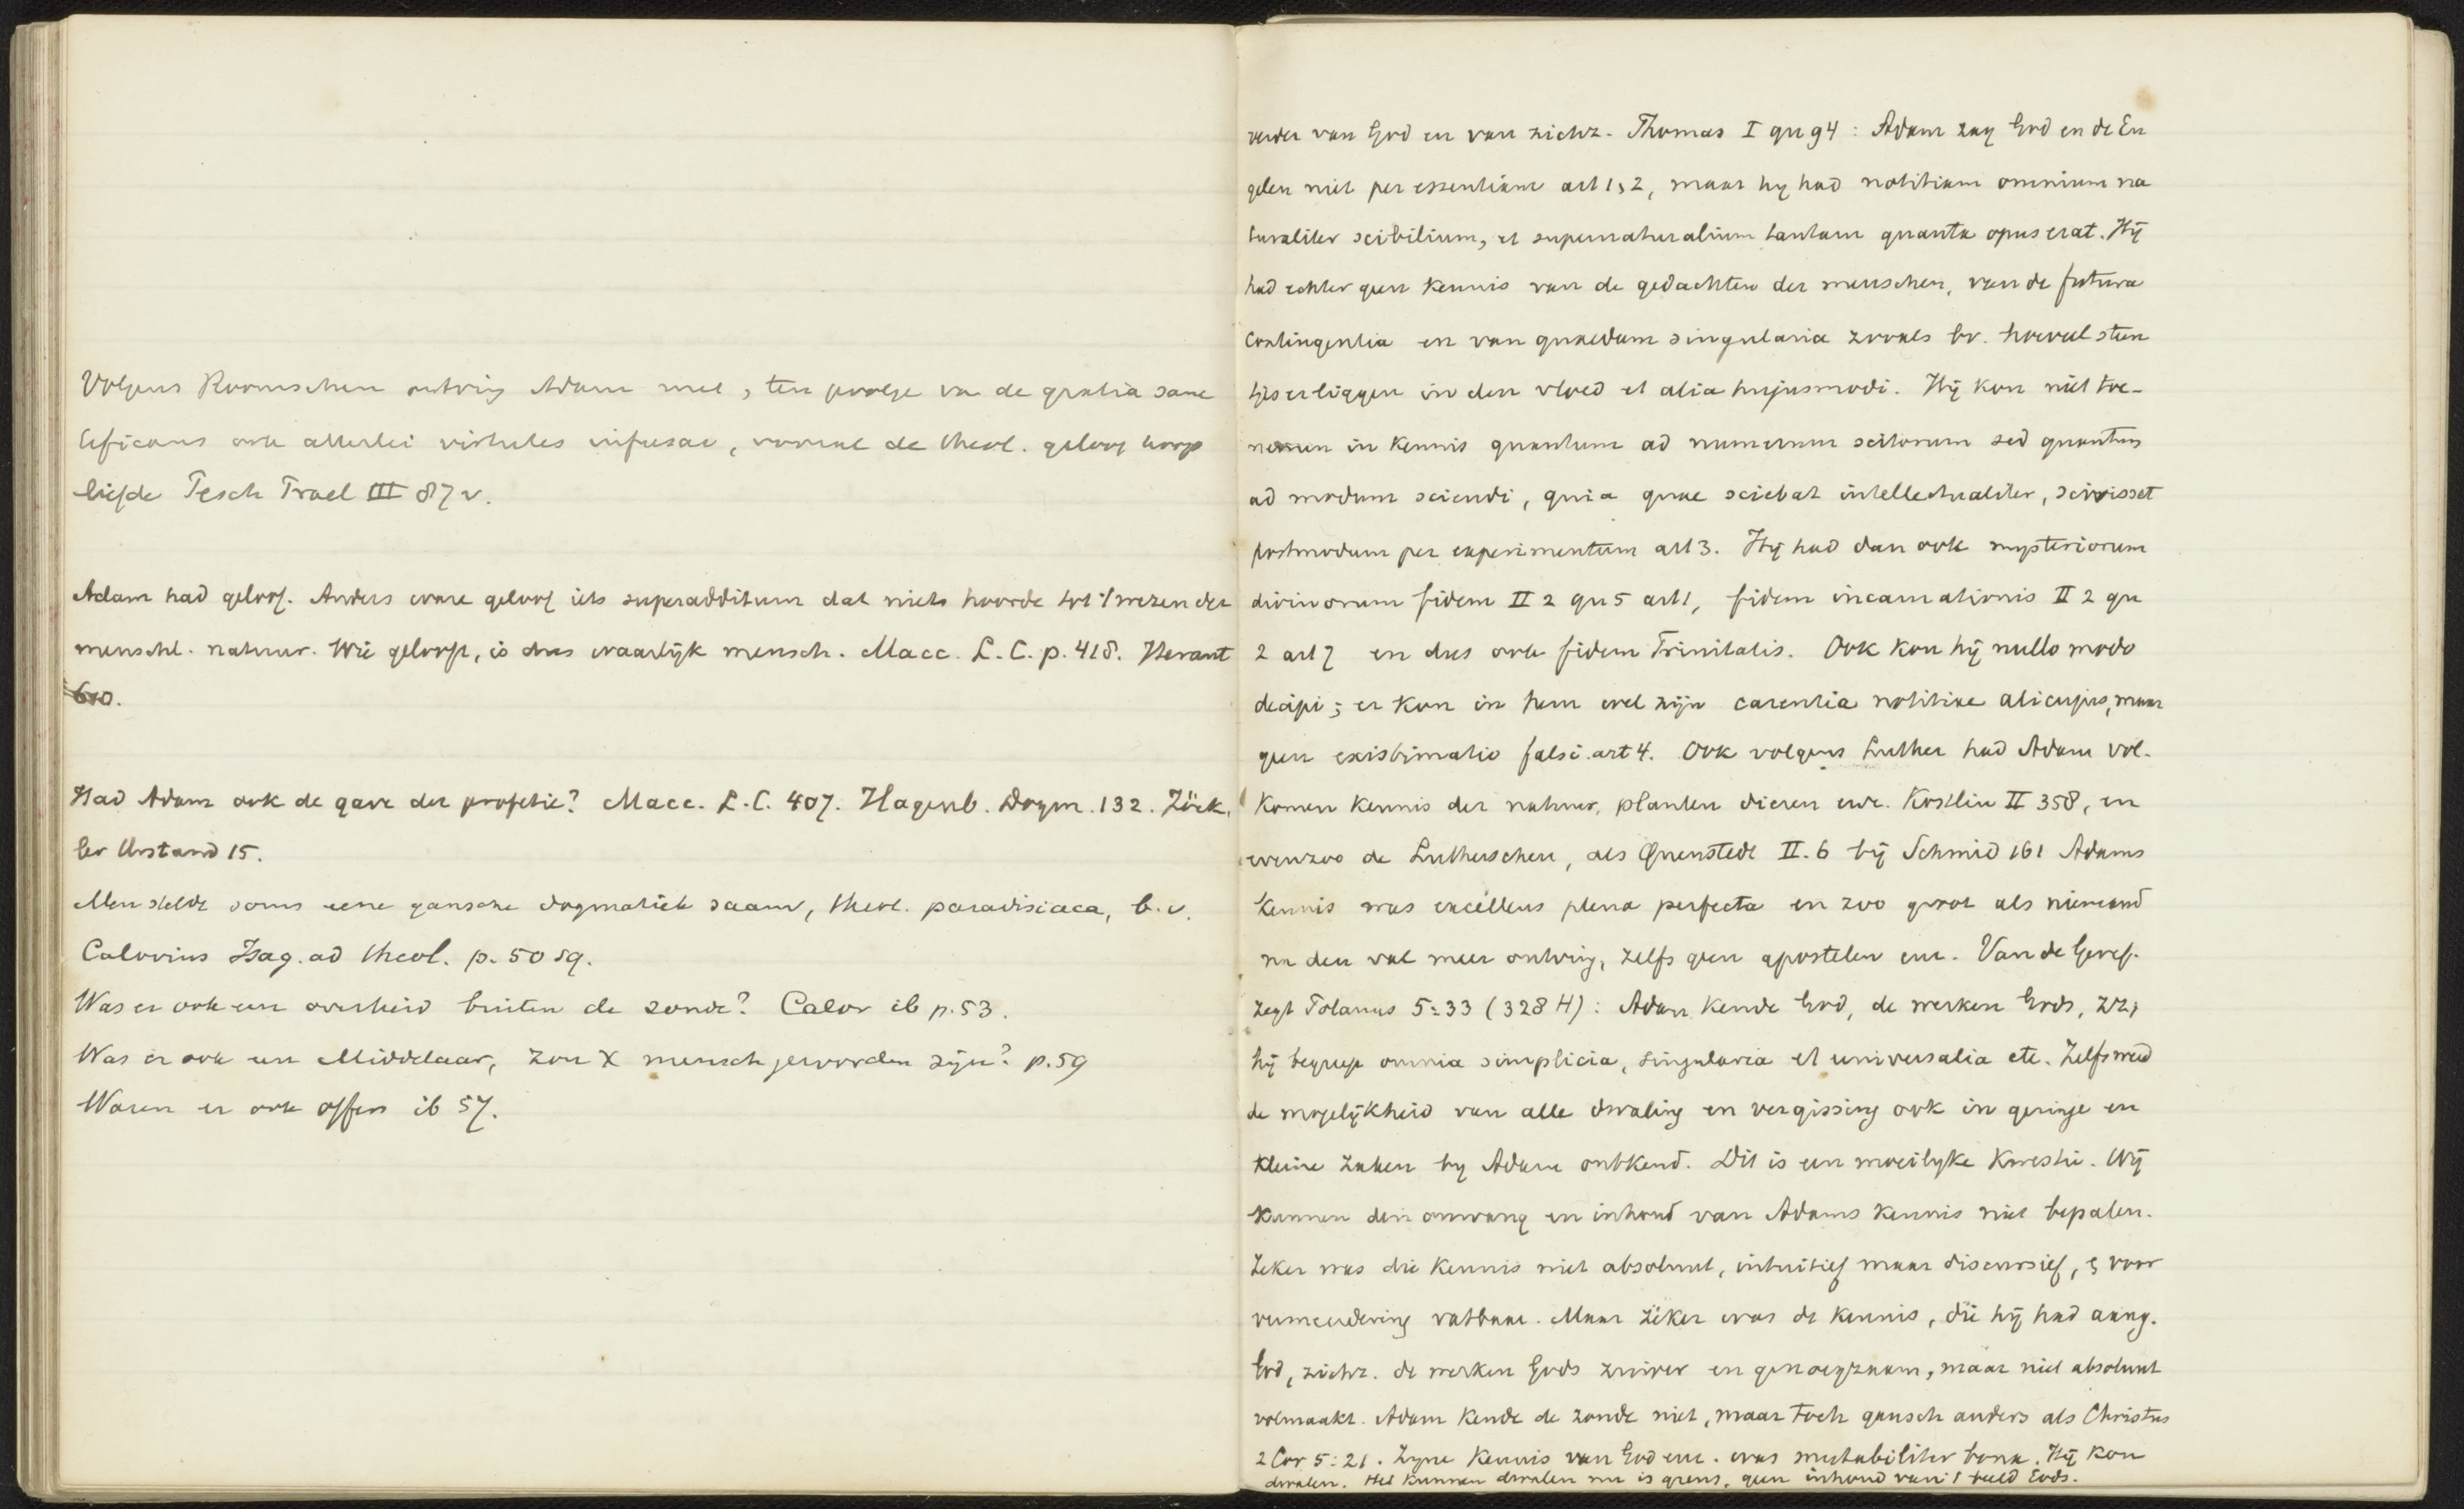 Volgens Roomschen ontving Adam met, ten gevolge van de gratia sanc
tificans ook allerlei virtutes infusae, vooral de theol. geloof hoop
liefde Pesch Prael III 87 v.
Adam had geloof. Anders ware geloof iets superadditum dat niets hoorde tot 't wezen der
menschl. natuur. Wie gelooft, is dus waarlijk mensch. Macc. L.C. p. 418. Heraut
610.
Had Adam ook de gave der profetie? Macc. L.C. 407. Hagenb. Dogm. 132. Zöck,
ler Urstand 15.
Men stelde soms eene gansche dogmatiek saam, theol. paradisiaca, b.v.
Calovius Isag. ad theol. p. 50 sq.
Was er ook een overheid buiten de zonde? Calov ib p. 53.
Was er ook een Middelaar, zou X mensch geworden zijn? p. 59
Waren er ook offers ib 57.
verder van God en van zichz. Thomas I qu 94: Adam zag God en de En
gelen niet per essentiam art 1, 2, maar hy had notitiam omnium na
turaliter scibilium, et supernaturalium tantam quanta opus erat. Hij
had echter geen kennis van de gedachten der menschen, van de futura
contingentia en van quaedam singularia zooals bv. hoeveel steen
tjes er liggen in den vloed et alia hujusmodi. Hij kon niet toe-
nemen in kennis quantum ad numerum scitorum sed quantum
ad modum sciendi, quia quae sciebat intellectualiter, scivisset
postmodum per experimentum art 3. Hij had dan ook mysteriorum
divinorum fidem II 2 qu 5 art 1, fidem incarnationis II 2 qu
2 art 7 en dus ook fidem Trinitatis. Ook kon hij nullo modo
decipi; er kon in hem wel zijn carentia notitiae alicujus, maar
geen existimatio falsi. art 4. Ook volgens Luther had Adam vol-
komen kennis der natuur, planten dieren enz. Kostlin II 358, en
evenzoo de Lutherschen, als Quenstedt II. 6 bij Schmid 161 Adams
kennis was excellens plena perfecta en zoo groot als niemand
na den val meer ontving, zelfs geen apostelen enz. Van de Geref.
zegt Polanus 5:33 (328 H): Adam kende God, de werken Gods, zz;
hij begreep omnia simplicia, singularia et universalia etc. Zelfs werd
de mogelijkheid van alle dwaling en vergissing ook in geringe en
kleine zaken by Adam ontkend. Dit is een moeilyke kwestie. Wij
kunnen den omvang en inhoud van Adams kennis niet bepalen.
Zeker was die kennis niet absoluut, intuitief maar discursief, & voor
vermeerdering vatbaar. Maar zéker was de kennis, die hij had aang.
God, zichz. de werken Gods zuiver en genoegzaam, maar niet absoluut
volmaakt. Adam kende de zonde niet, maar toch gansch anders als Christus
2 Cor 5:21. Zyne kennis van God enz. was mutabiliter bona. Hij kon
dwalen. Het kunnen dwalen nu is grens, geen inhoud van 't beeld Gods.